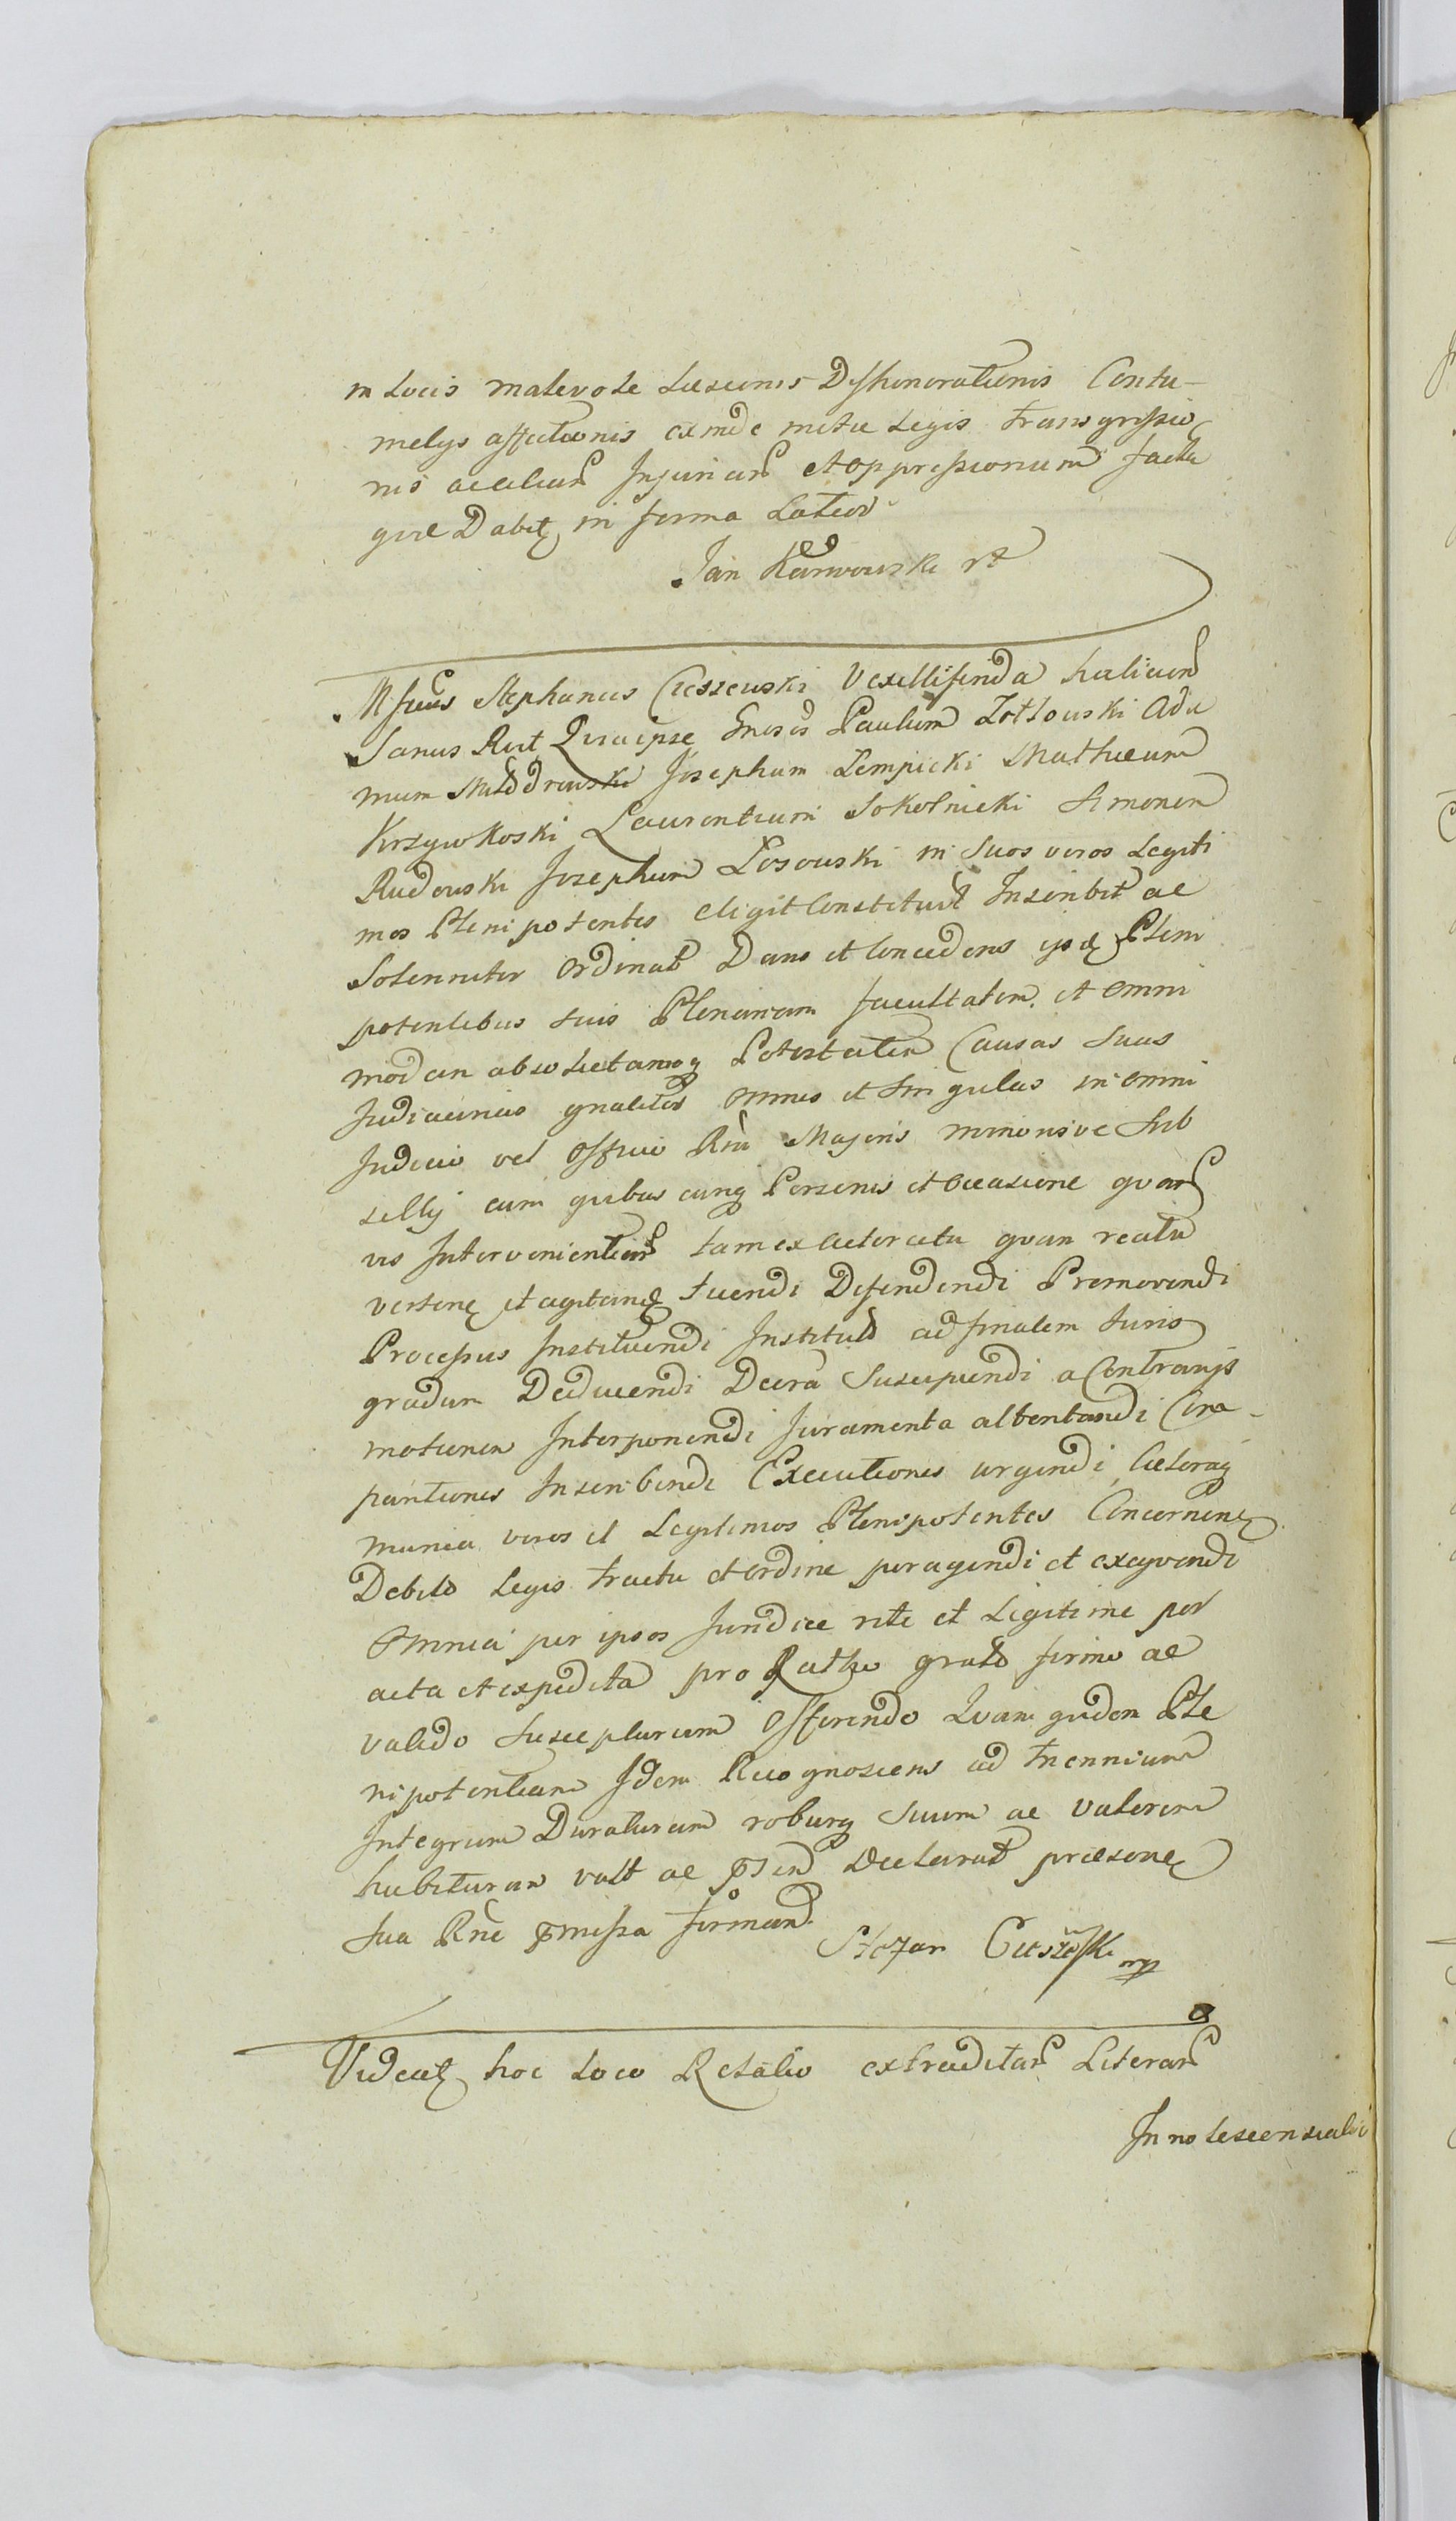 in Locis malevole Læsionis Dishonorationis Contu-
melijs affectionis exinde metu Legis transgressio
nis aclium Injuriarum et oppressionum facta
quæ Dabitur in forma Latior
Jan Karwowski rt
Mfcus Stephanus Cieszewski Vexillifenda halicien
Sanus Rctt Quia ipse Gnosos Paulum Zottowski Ada
mum Modrewski Josephum Lempicki Mathæum
Krzywkoski Laurentium Sokolnicki Simonem
Rudowski Josephum Losowski in Suos veros Legiti
mos Plenipotentes eligit Constituit Inscribit ac
Solenniter Ordinat Dans et Concedens ijsdem Pleni
potentibus Suis Plenariam facultatem et omni
modam absolutamq Potestatem Causas Suas
Judiciarias gnaliter omnes et Singulas in omni
Judicio vel Officio Rni Majoris minorisve Sub
sellij cum quibuscunq Personis et Occasione quar
vis Intervenientium tam ex actoratu quam reatu
verten et agitan tuendi Defendendi Promovendi
Processus Instituendi Institut ad finalem Juris
gradum Deducendi Decra Suscipiendi a Contrarijs
motionem Interponendi Juramenta attentandi Com
paritiones Inscribendi Executiones urgendi Cæteraq
munia veros et Legitimos Plenipotentes Concernen
Debito Legis tractu et ordine peragendi et exequendi
Omnia per ipsos Juridice rite et Legitime per
acta et expedita pro Ratho grato firmo ac
valido Suscepturum Offerendo Quam quidem Ple
nipotentiam Idem Recognoscens ad triennium
Integrum Duraturam roburq Suum ac valorem
habituram vult ac psen Declarat præsen
Sua Rne pmissa firmand
Stefan Cieszewski mp
Videatur hoc Loco Relatio extraditar Literar
Innotescentiali